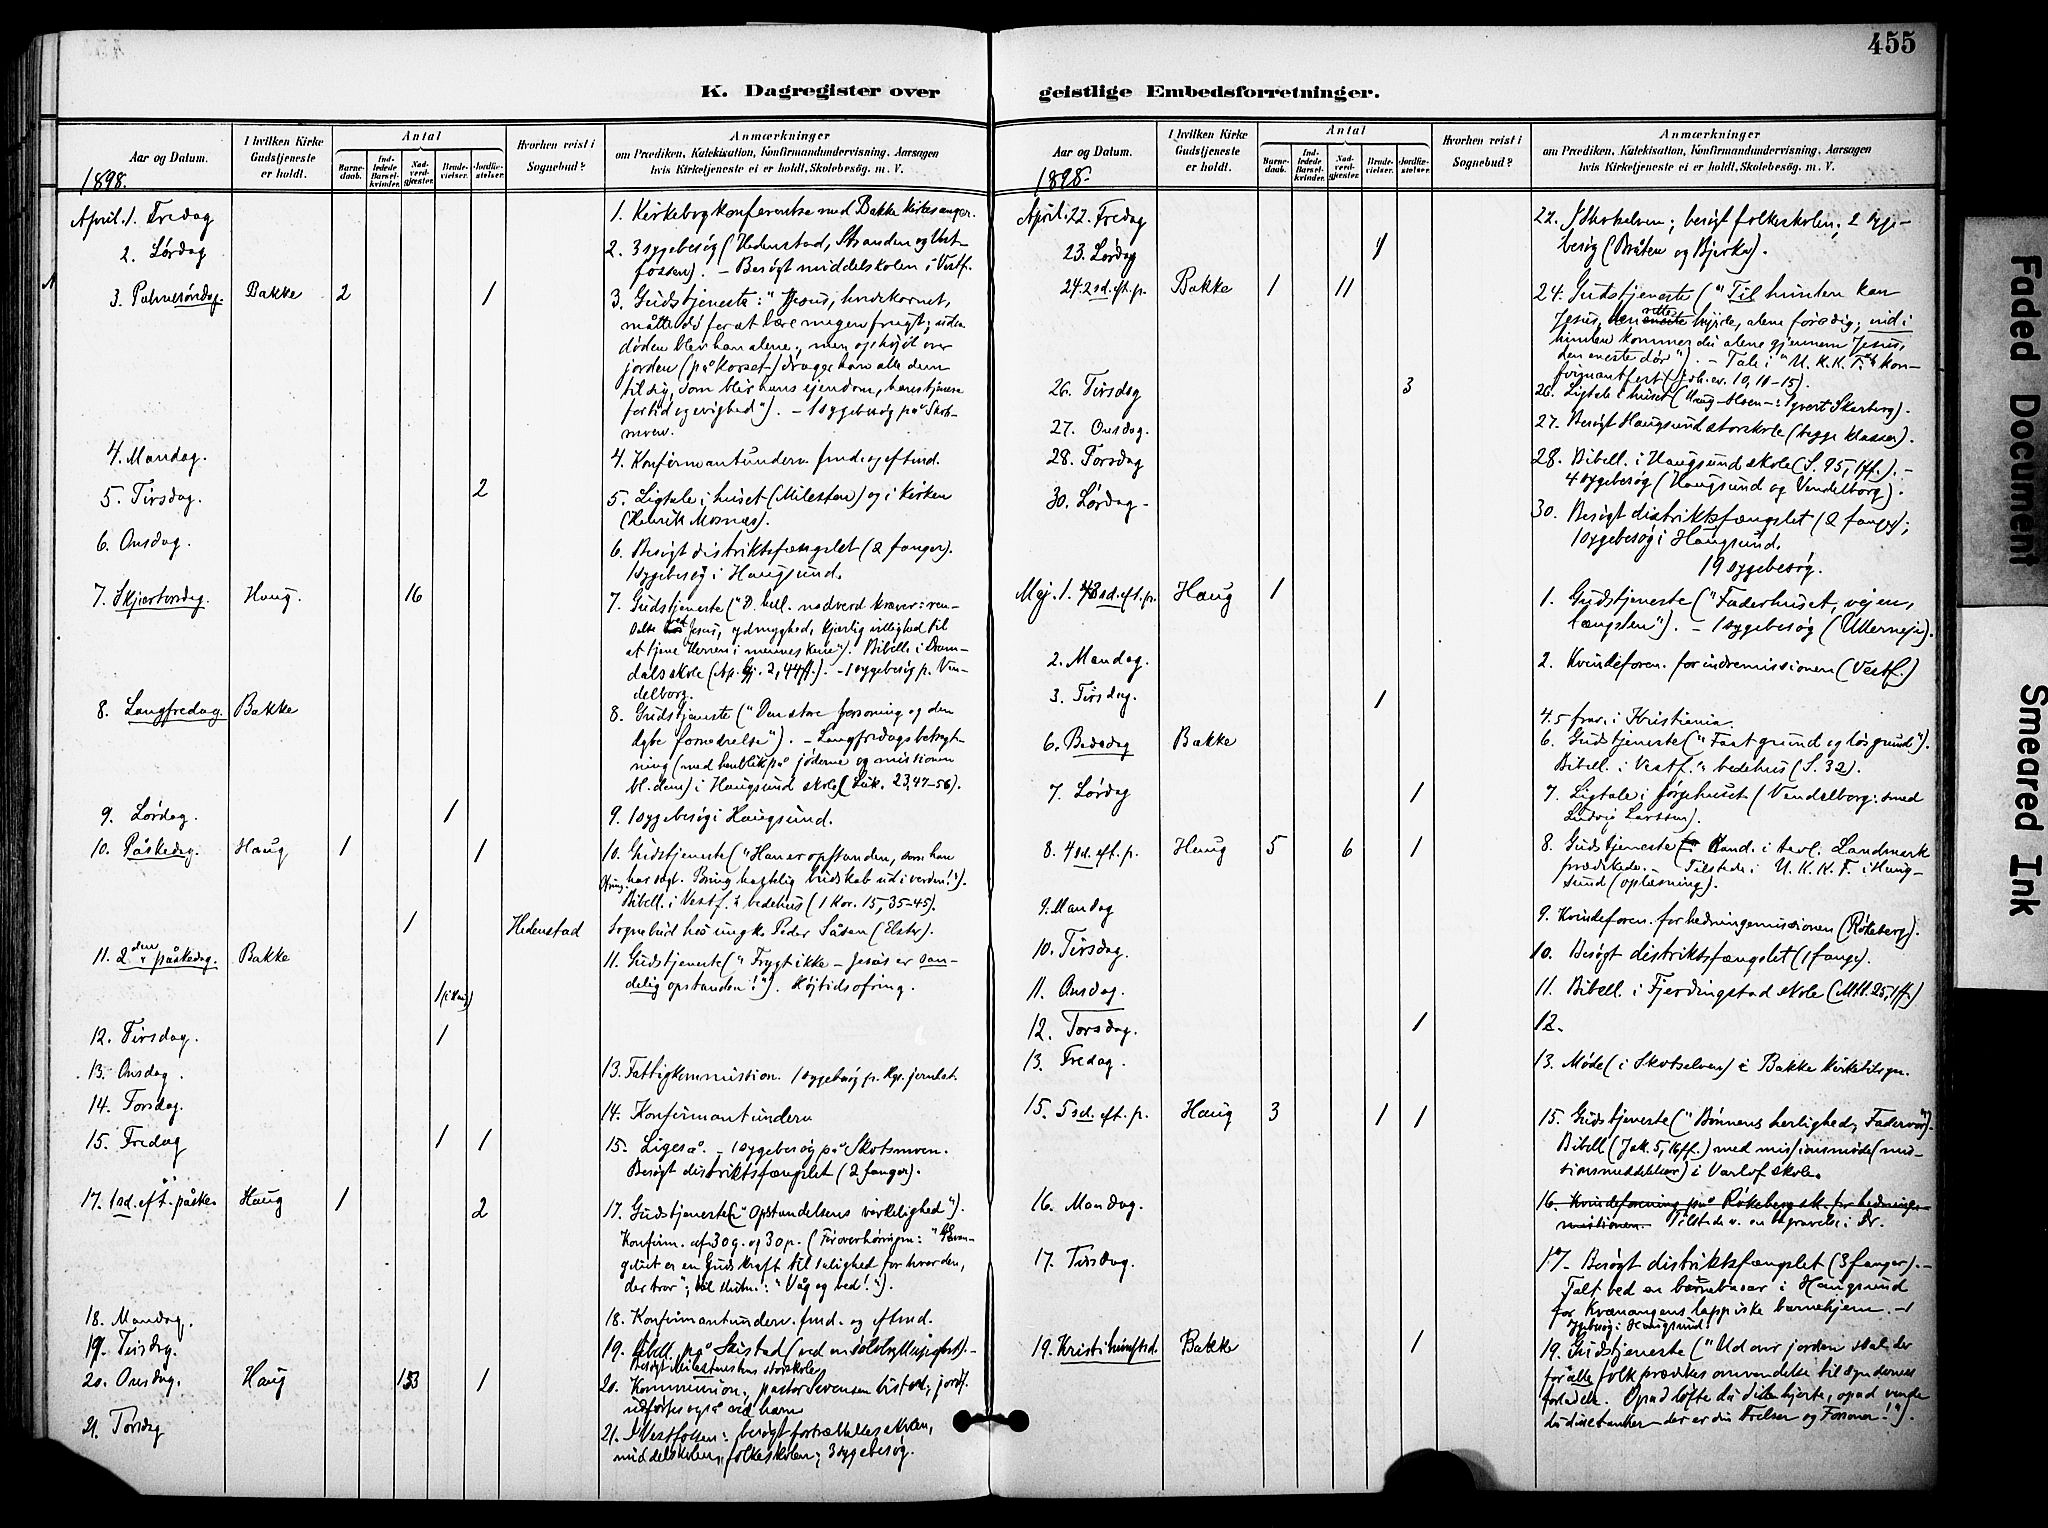 455
K. Dagregister over geistlige Embedsforretninger.
Aar og Datum.
1898.
I hvilken Kirke Gudstjeneste er holdt.
Antal
Barnedaab.
Indledede Barselkvinder.
Nadverdgjester.
Brudevielser.
Jordfæstelser.
Hvorhen reist i Sognebud?
Anmærkninger
om Prædiken, Katekisation, Konfirmandundervisning, Aarsagen
hvis Kirketjeneste ei er holdt, Skolebesøg. m. V.
April. 1. Fredag
1. Kirkebogkonferentse med Bakke kirkesanger.
2. Lørdag
2. 3 sygebesøg (Hedenstad, Stranden og Vest-
fossen). – Besøgt middelskolen i Vestf.
3. Palmesøndag. Bakke 2 1
3. Gudstjeneste: "Jesus, hvedekornet,
måtte dø for at bære megen frugt; uden
døden blev han alene; men ophøjet over
jorden (på korset) drager han alle dem
til sig, som blir hans ejendom, hans tjenere
for tid og evighed"). – 1 sygebesøg på Skots-
moen.
4. Mandag.
4. Konfirmantunderv. fmd. og eftmd.
5. Tirsdag. 2
5. Ligtale i huset (Milesten) og i kirken
(Henrik Mosnæs).
6. Onsdag.
6. Besøgt distriktsfængslet (2 fanger).
1 sygebesøg i Haugsund.
7. Skjærtorsdag. Haug. 16
7. Gudstjeneste ("D. hell. nadverd kræver: ren-
ved Jesus, ydmyghed, kjærlig villighed til
at tjene Herren i menneskene"). Bibell. i Dram-
dals skole (Ap. Gj. 2, 44ff.). – 1 sygebesøg p. Ven-
delborg.
8. Langfredag. Bakke
8. Gudstjeneste ("Den store forsoning og den
dybe fornedrelse"). – Langfredagsbetragt-
ning (med henblik på jøderne og missionen
bl. dem) i Haugsund skole (Luk. 23, 47–56).
9. Lørdag. 1
9. 1 sygebesøg i Haugsund.
10. Påskedag. Haug 1 1
10. Gudstjeneste ("Han er opstanden, som han
har sagt. Bring hastelig budskab ud i verden!").
Bibell. i Vestf.s bedehus (1 Kor. 15, 35–45).
1 Hedenstad Sognebud hos ungk. Peder Såsen (Elster).
11. 2den påskedag. Bakke
11. Gudstjeneste ("Frygt ikke – Jesus er san-
delig opstanden!"). Højtidsofring.
1 (i Haug)
12. Tirsdag. 1
13. Onsdag.
13. Fattigkommission. 1 sygebesøg p.
14. Torsdag.
14. Konfirmantunderv
15. Fredag 1 1
15. Ligeså. – 1 sygebesøg på Skotsmoen.
Besøgt distriktsfængslet (2 fanger).
17. 1 sd. eft. påske. Haug 1 2
17. Gudstjeneste ("Opstandelsens virkelighed").
Konfirm. af 30 g. og 30 p. (Før overhøringen: "Evan-
geliet er en Guds kraft til salighed for hver den,
der tror"; til slutn.: "Våg og bed!").
18. Mandag.
18. Konfirmantunderv. fmd. og eftmd.
19. Tirsdag.
19. Bibell. på Skistad (ved en sølvbryllupsfest). –
Besøgt Milestenshus storskole
20. Onsdag. Haug 153 1
20. Kommunion; pastor Svensen bistod; jordf.
udførtes også ved ham
21. Torsdag
21. I Vestfossen: besøgt fortsættelsesskolen,
middelskolen, folkeskolen; 3 sygebesøg.
Aar og Datum.
1898.
I hvilken Kirke Gudstjeneste er holdt.
Antal
Barnedaab.
Indledede Barselkvinder.
Nadverdgjester.
Brudevielser.
Jordfæstelser.
Hvorhen reist i Sognebud?
Anmærkninger
om Prædiken, Katekisation, Konfirmandundervisning, Aarsagen
hvis Kirketjeneste ei er holdt, Skolebesøg. m. V.
April. 22. Fredag
22. I Skotselven; besøgt folkeskolen; 2 syge-
besøg (Bråten og Bjerke).
23. Lørdag 1
24. 2 sd. eft. p. Bakke 1 11
24. Gudstjeneste ("Til himlen kan
Jesus, den rette hyrde, alene føre dig; ind i
himlen kommer du alene gjennem Jesus,
den eneste dør"). – Tale i "U. K. K. F.s kon-
firmantfest (Joh. ev. 10, 11–15).
26. Tirsdag 3
26. Ligtale i huset (Haug – Syvert Skarberg).
27. Onsdag.
27. Besøgt Haugsund storskole (begge klasser).
28. Torsdag
28. Bibell. i Haugsund skole (S. 95, 1ff.). –
4 sygebesøg (Haugsund og Vendelborg).
30. Lørdag –
30. Besøgt distriktsfængslet (2 fanger);
1 sygebesøg i Haugsund.
19 sygebesøg.
Mej. 1. 3 sd. eft. p. Haug 1
1. Gudstjeneste ("Faderhuset, vejen,
længslen"). – 1 sygebesøg (Ullerneje).
2. Mandag.
2. Kvindeforen. for indremissionen (Vestf.)
3. Tirsdag. 1
4. 5 frav. i Kristiania.
6. Bededag Bakke
6. Gudstjeneste ("Fast grund og løs grund").
Bibell. i Vestf.s bedehus (S. 32).
7. Lørdag 1
7. Ligtale i sørgehuset (Vendelborg: smed
Ludvig Larssen).
8. 4 sd. eft. p. Haug 5 6 1
8. Gudstjeneste Kand. i teol. Landmark
prædikede. – Tilstede i U. K. K. F. i Haug-
sund (oplæsning).
9. Mandag
9. Kvindeforen. for hedningemissionen (Røkeberg).
10. Tirsdag.
10. Besøgt distriktsfængslet (1 fange).
11. Onsdag.
11. Bibell. i Fjerdingstad skole (Mtt. 25, 1ff.)
12. Torsdag. 1
12.
13. Fredag.
13. Møde (i Skotselven) i Bakke kirketilsyn.
15. 5 sd. eft. p. Haug 3 1 1
15. Gudstjeneste ("Bønnens herlighed; Fadervor").
Bibell. (Jak. 5, 16ff.) med missionsmøde (mis-
sionsmeddelelser) i Varlo skole.
16. Mandag.
16. Kvindeforening på Røkeberg sk. for hedninge-
missionen. Tilstede v. en begravelse i Dr.
17. Tirsdag.
17. Besøgt distriktsfængslet (3 fanger). –
Talt ved en barnebasar i Haugsund
for Kvænangens lappiske barnehjem. – 1
sygebesøg i Haugsund.
19. Kristi himlfrtsd. Bakke 1
19. Gudstjeneste ("Ud over jorden skal der
for alle folk prædikes omvendelse til syndernes
forladelse. Opad løfte du dit hjerte, opad vende
du dine tanker – der er din Frelser og Forsoner!").
Faded Document
Smeared Ink